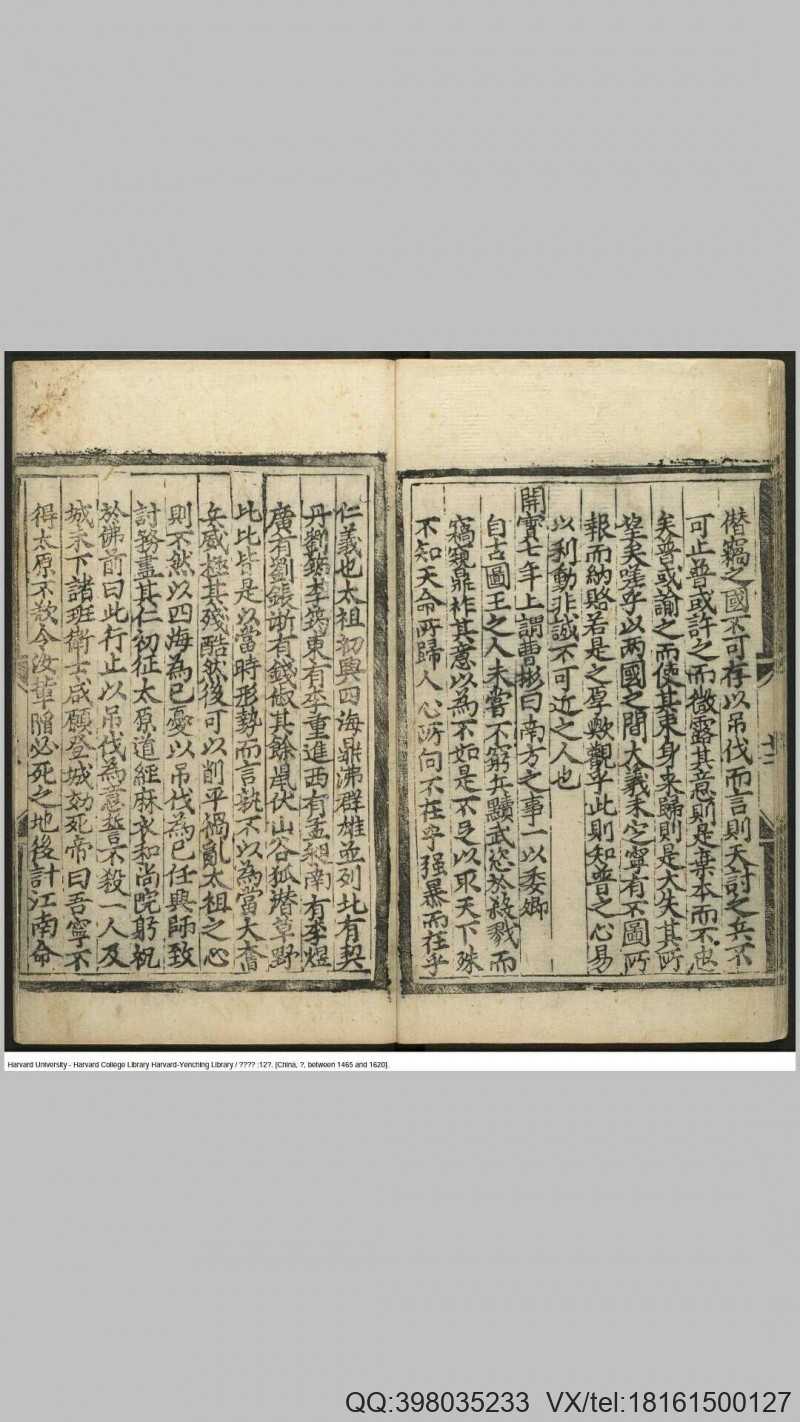 僣竊之國不可存以吊伐而言則天討之兵不
可止普或許之而微露其意則是棄本而不忠
矣普或諭之而使其束身来歸則是大失其所
望矣嗟乎以两國之間大義未定寧有不圖所
報而納賂若是之厚歟觀乎此則知普之心易
以利動非誠不可近之人也
開寳七年上謂曹彬曰南方之事一以委卿
自古圖王之人未嘗不窮兵黷武恣於殺戮而
竊窺鼎祚其意以為不如是不足以取天下殊
不知天命所歸人心所向不在乎强暴而在乎
仁義也太祖初興四海鼎沸群雄並列北有契
丹劉鈞李筠東有李重進西有孟昶南有李煜
廣有劉鋹浙有錢俶其餘鼠伏山谷狐潜草野
比比皆是以當時形勢而言孰不以為當大奮
兵威極其殘酷然後可以削平禍亂太祖之心
則不然以四海為已憂以吊伐為已任興師致
討務盡其仁初征太原道經麻衣和尚院躬祝
於佛前曰此行止以吊伐為意誓不殺一人及
城未下諸班衛士咸願登城効死帝曰吾寧不
得太原不敎令汝軰陷必死之地後計江南命
Harvard University - Harvard College Library Harvard-Yenching Library / ???? :12?. [China, ?, between 1465 and 1620].
QQ:398035233 VX/tel:18161500127